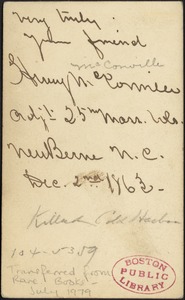 very truly
your friend
McConville
Henry McConville
Adjt. 25th Mass. Vols.
NewBerne N.C.
Dec. 2nd 1863
Killed Cold Harbor
Transferred from
Rare Books
July 1979
BOSTON
PUBLIC
LIBRARY